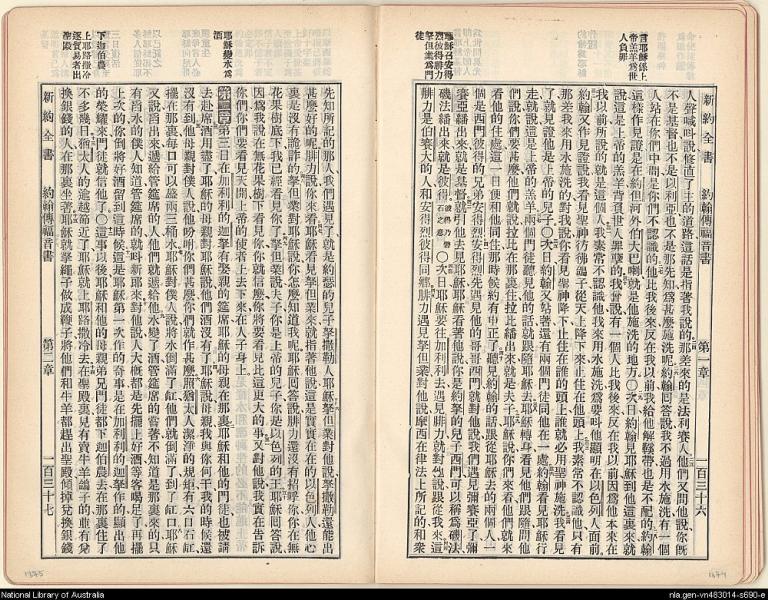 言耶穌係上
帝羔羊為世
人負罪
耶穌召安得
烈彼得腓力
拿但業為門
徒
新約全書 約翰傳福音書 第一章 一百三十六
人聲喊叫說修直了主的道路這話是指著我說的那差來的是法利賽人他們又問他說你既
不是基督也不是以利亞也不是那先知為甚麼施洗呢約翰回答說我不過用水施洗有一個
人站在你們中間是你們不認識的他比我後來反在我以前我給他解鞋帶也是不配的約翰
這樣作見證是在約但河外伯大巴喇就是他施洗的地方〇次日約翰見耶穌到他這裏來就
說這是上帝的羔羊背負世人罪孽的我曾說有一個人比我後來反在我以前因為他本來在
我以前所說的就是這個人我素常不認識他我來用水施洗為要叫他顯明在以色列人面前
約翰又作見證說我看見聖神彷彿鴿子從天上降下來止住在他頭上我素常不認識他只有
那差我來用水施洗的對我說你看見聖神降下止住在誰的頭上誰就必用聖神施洗我看見
了就見證他是上帝的兒子〇次日約翰又站著還有兩個門徒同他在一處約翰看見耶穌行
走就說這是上帝的羔羊兩個門徒聽見他的話就跟隨耶穌去耶穌轉身看見他們跟隨問他
們說你們要甚麼他們說拉比在那裏住拉比繙出來就是夫子耶穌說你們來看他們就來
看他的住處這一日便和他同住那時候約有申正了聽見約翰的話跟從耶穌去的兩個人一
個是西門彼得的兄弟安得烈安得烈先遇見他的哥哥西門就對他說我們遇見彌賽亞了彌
賽亞繙出來就是基督就引他去見耶穌耶穌看著他說你是約拏的兒子西門可以稱為磯法
磯法繙出來就是彼得〇次日耶穌要往加利利去遇見腓力就對他說跟從我來這
腓力是伯賽大的人和安得烈彼得同鄉腓力遇見拏但業對他說摩西在律法上所記的和衆
耶穌變水為
酒
下迦伯農
上耶路撒冷
逐貿易者出
聖殿
先知所記的那人我們遇見了就是約瑟的兒子拏撒勒人耶穌拏但業對他說拏撒勒還能出
甚麼好的呢腓力說你來看耶穌看見拏但業來就指著他說這是實實在在的以色列人他心
裏是沒有詭詐的拏但業對耶穌說你怎麼知道我呢耶穌回答說腓力還沒有招呼你你在無
花果樹底下我已經看見你了拏但業說夫子你是上帝的兒子你是以色列的王耶穌回答說
因為我說在無花果樹下看見你你就信麼你將要看見比這更大的事又對他說我實在告訴
你們你們要看見天開上帝的使者上去下來在人子身上
第二章第三日在加利利的迦拏有娶親的筵席耶穌的母親在那裏耶穌和他的門徒也被請
去赴席酒用盡了耶穌的母親對耶穌說他們酒沒有了耶穌說母親我與你何干我的時候還
沒有到他母親對僕人說他吩咐你們甚麼你們就作甚麼照猶太人潔淨的規矩有六口石缸
擺在那裏每口可以盛兩三桶水耶穌對僕人說將水倒滿了缸他們就倒滿了到了缸口耶穌
又說舀出來遞給管筵席的人他們就遞給他水變了酒管筵席的嘗著不知道是那裏來的只
有舀水的僕人知道管筵席的就叫新郎來對他說人大概都是先擺上好酒等客喝足了再擺
上次的你倒將好酒留到這時候這是耶穌第一次作的奇事是在加利利的迦拏作的顯出他
的榮耀來門徒就信他了〇這事以後耶穌和他的母親弟兄門徒都下迦伯農去在那裏住了
不多幾日猶太人的逾越節近了耶穌就上耶路撒冷去在聖殿裏見有賣牛羊鴿子的並有兌
換銀錢的人在那裏坐著耶穌就拏繩子做成鞭子將他們和牛羊都趕出聖殿傾掉兌換銀錢
新約全書 約翰傳福音書 第二章 一百三十七
National Library of Australia
nla.gen-vn483014-s690-e